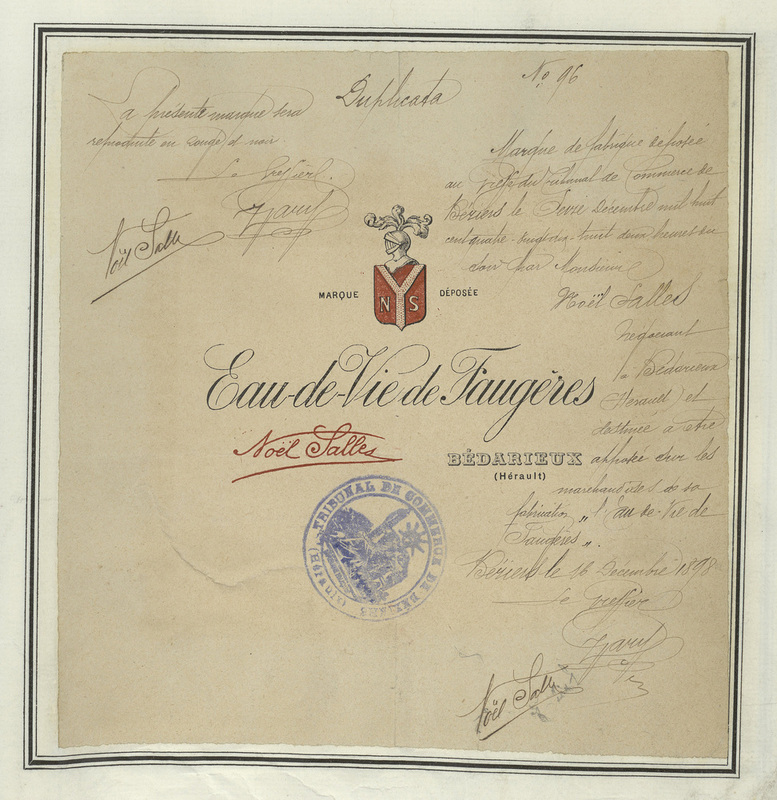 Duplicata
No 96
La présente marque sera
reproduite en rouge et noir.
Le Greffier
Noël Salles
Marque de fabrique déposée
au Greffe du Tribunal de Commerce de
Béziers le Seize Décembre mil huit
cent quatre-vingt-dix-huit deux heures du
soir par Monsieur
Noël Salles
négociant
à Bédarieux
(Hérault) et
destinée à être
apposée sur les
marchandises de sa
fabrication „ l'Eau-de-Vie de
Faugères „.
Béziers le 16 Décembre 1898
Le Greffier
Noël Salles
MARQUE DÉPOSÉE
N S
Eau-de-Vie de Faugères
Noël Salles
BÉDARIEUX
(Hérault)
TRIBUNAL DE COMMERCE DE BÉZIERS (Hérault)